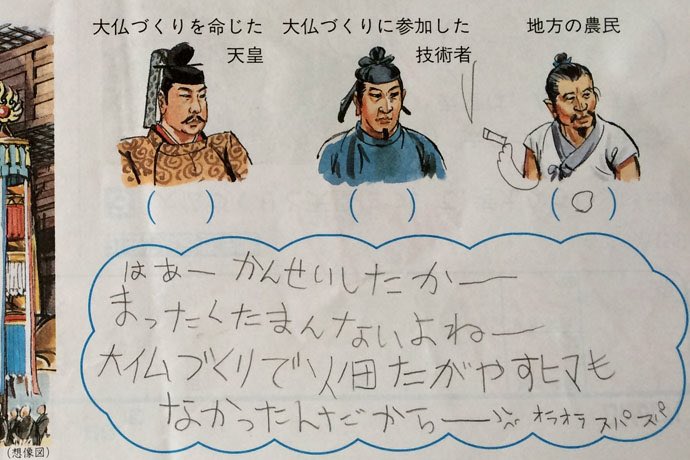 大仏づくりを命じた
天皇
大仏づくりに参加した
技術者
地方の農民
( )
( )
(○)
はあーかんせいしたかー
まったくたまんないよねー
大仏づくりで畑たがやすヒマも
なかったんだからー オラオラ スパスパ
(想像図)